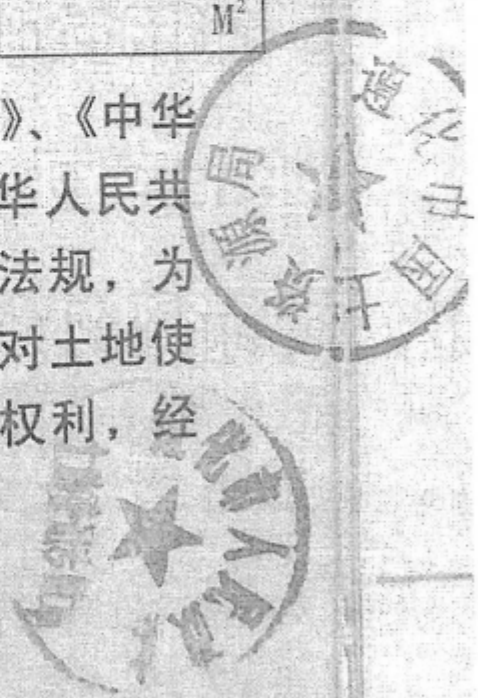 M²
》、《中华
华人民共
法规，为
对土地使
权利，经
市国土资源局
人民